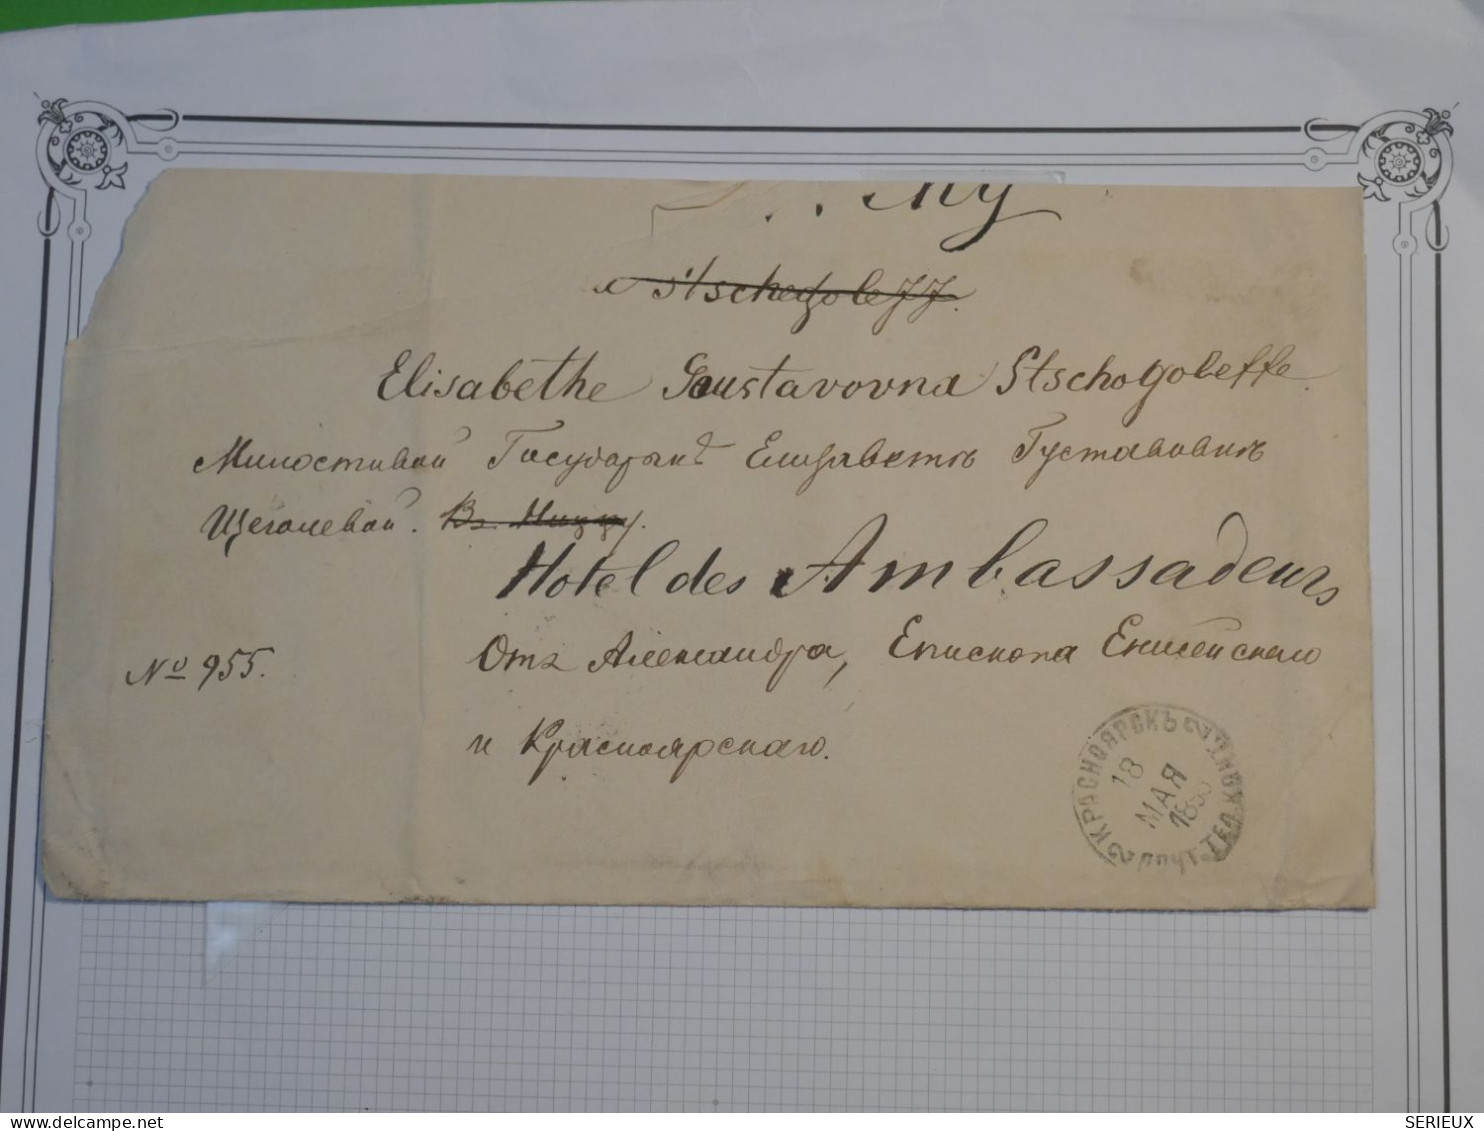 Stschegoleff.
Elisabethe Gustavovna Stschogoleffe.
Милостивой Государынѣ Елизаветѣ Густавовнѣ
Щеголевой. Въ Ниццу.
Hotel des Ambassadeurs
Отъ Александра, Епископа Енисейскаго
№ 955.
и Красноярскаго.
КРАСНОЯРСКЪ
18
МАЯ
ПОЧТ. ТЕЛ. К
delcampe.net
SERIEUX